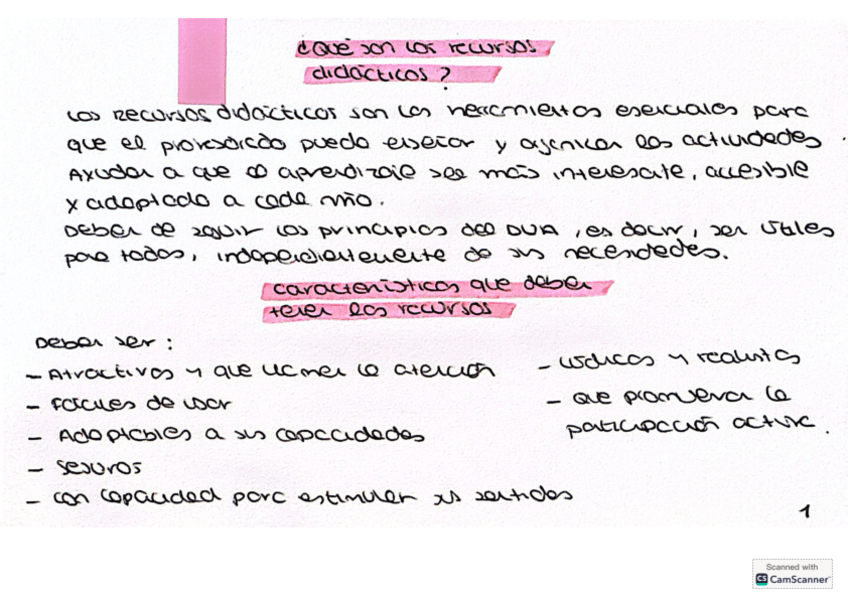 ¿Qué son los recursos
didácticos?
Los recursos didácticos son las herramientas esenciales para
que el profesorado pueda enseñar y organizar las actividades.
Ayudan a que el aprendizaje sea más interesante, accesible
y adaptado a cada niño.
Deben de seguir los principios del DUA, es decir, ser útiles
para todos, independientemente de sus necesidades.
características que deben
tener los recursos
Deben ser:
- Atractivos y que llamen la atención
- Fáciles de usar
- Adaptables a sus capacidades
- Seguros
- con capacidad para estimular sus sentidos
- lúdicos y realistas
- que promuevan la
participación activa.
1
Scanned with
CS CamScanner